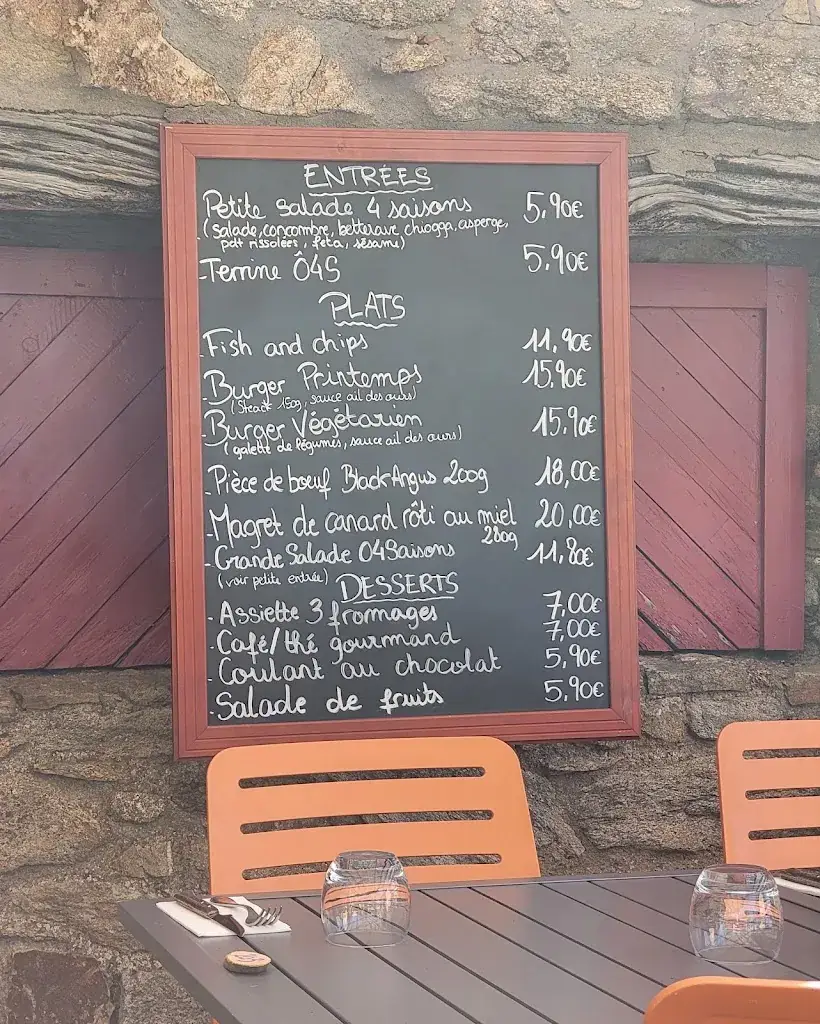 ENTRÉES
Petite salade 4 saisons 5,90€
(salade, concombre, betterave chiogga, asperge,
pdt rissolées, feta, sésame)
-Terrine Ô4S 5,90€
PLATS
-Fish and chips 11,90€
-Burger Printemps 15,90€
(Steack 150g, sauce ail des ours)
-Burger Végétarien 15,90€
(galette de légumes, sauce ail des ours)
-Pièce de boeuf Black Angus 200g 18,00€
-Magret de canard rôti au miel 20,00€
280g
-Grande Salade 04Saisons 11,80€
(voir petite entrée)
DESSERTS
-Assiette 3 fromages 7,00€
-Café/thé gourmand 7,00€
-Coulant au chocolat 5,90€
-Salade de fruits 5,90€